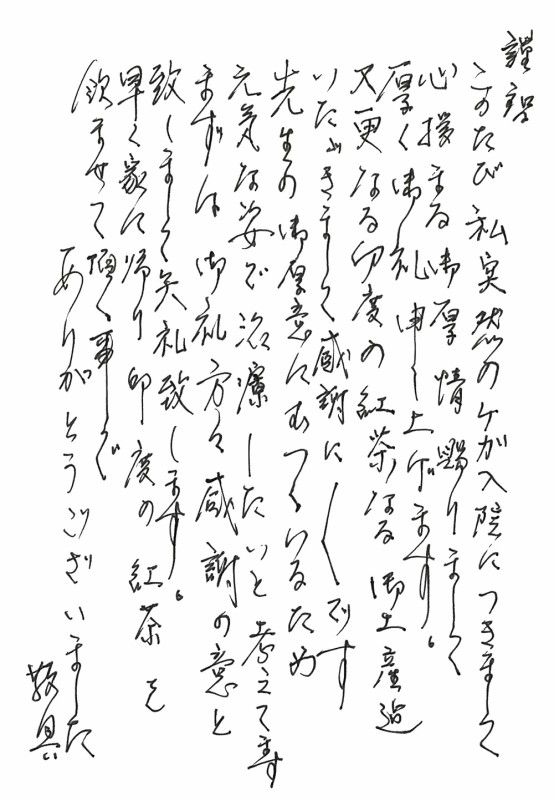 謹啓
このたび私突然のケガ入院につきまして
心援まる御厚情賜りまして
厚く御礼申し上げます。
又更なる印度の紅茶なる御土産迄
いただきまして感謝に〱です
先生の御厚意にむつくいるため
元気な姿で治療したいと考えてます
まずは御礼方々感謝の意と
致しまして失礼致します。
早く家に帰り印度の紅茶を
飲ませて頂く事で
ありがとうございました
敬具